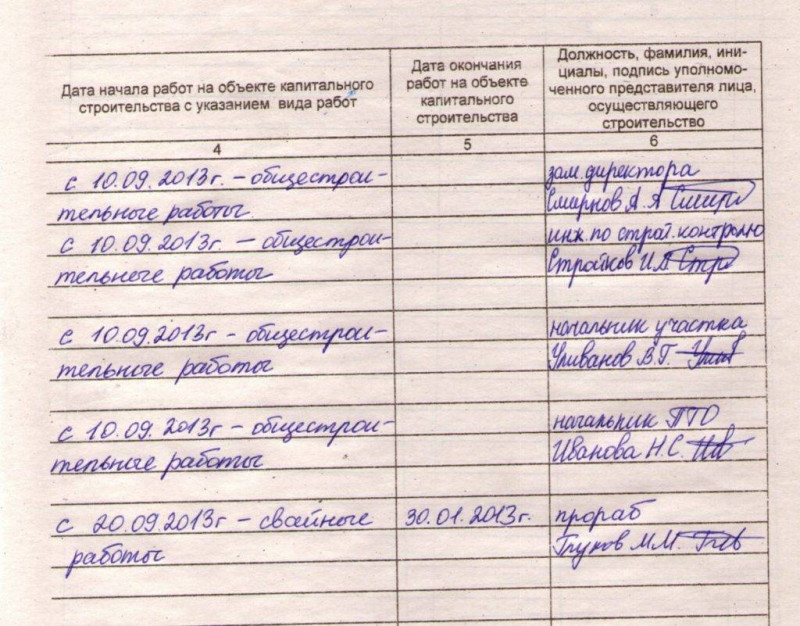 Дата начала работ на объекте капитального
строительства с указанием вида работ
Дата окончания
работ на объекте
капитального
строительства
Должность, фамилия, ини-
циалы, подпись уполномо-
ченного представителя лица,
осуществляющего
строительство
4
5
6
с 10.09.2013г. – общестрои-
тельные работы.
зам. директора
Смирнов А.А
с 10.09.2013г. – общестрои-
тельные работы
инж. по строй. контролю
Стройков И.А.
с 10.09.2013г – общестрои-
тельные работы
начальник участка
Уливанов В.Г.
с 10.09.2013г – общестрои-
тельные работы
начальник ПТО
Иванова Н.С.
с 20.09.2013г – свайные
работы
30.01.2013г.
прораб
Глухов М.М.